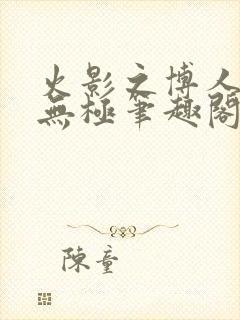 火影之博人
無極筆趣閣
陳童